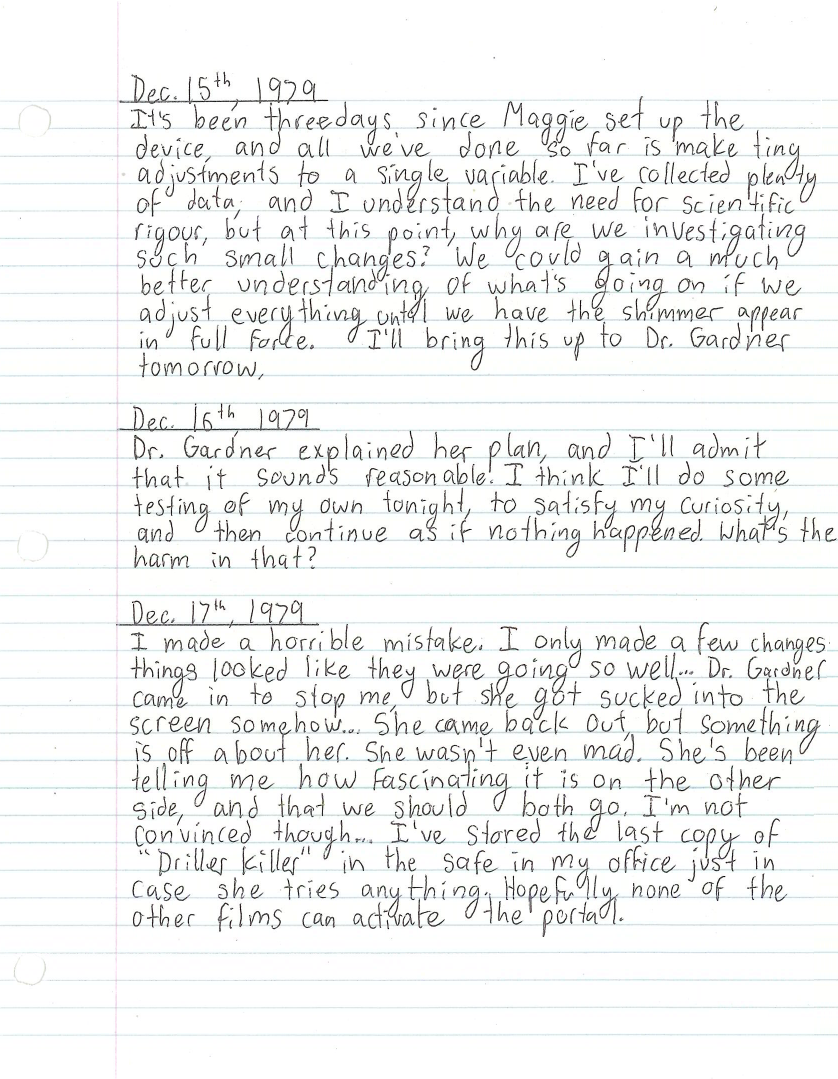 Dec. 15th, 1979
It's been threedays since Maggie set up the
device, and all we've done so far is make tiny
adjustments to a single variable. I've collected plenty
of data, and I understand the need for scientific
rigour, but at this point, why are we investigating
such small changes? We could gain a much
better understanding of what's going on if we
adjust everything until we have the shimmer appear
in full force. I'll bring this up to Dr. Gardner
tomorrow.
Dec. 16th, 1979
Dr. Gardner explained her plan, and I'll admit
that it sounds reasonable. I think I'll do some
testing of my own tonight, to satisfy my curiosity,
and then continue as if nothing happened. What's the
harm in that?
Dec. 17th, 1979
I made a horrible mistake. I only made a few changes.
things looked like they were going so well... Dr. Gardner
came in to stop me, but she got sucked into the
screen somehow... She came back out, but something
is off about her. She wasn't even mad. She's been
telling me how fascinating it is on the other
side, and that we should both go. I'm not
convinced though... I've stored the last copy of
"Driller Killer" in the safe in my office just in
case she tries anything. Hopefully none of the
other films can activate the portal.